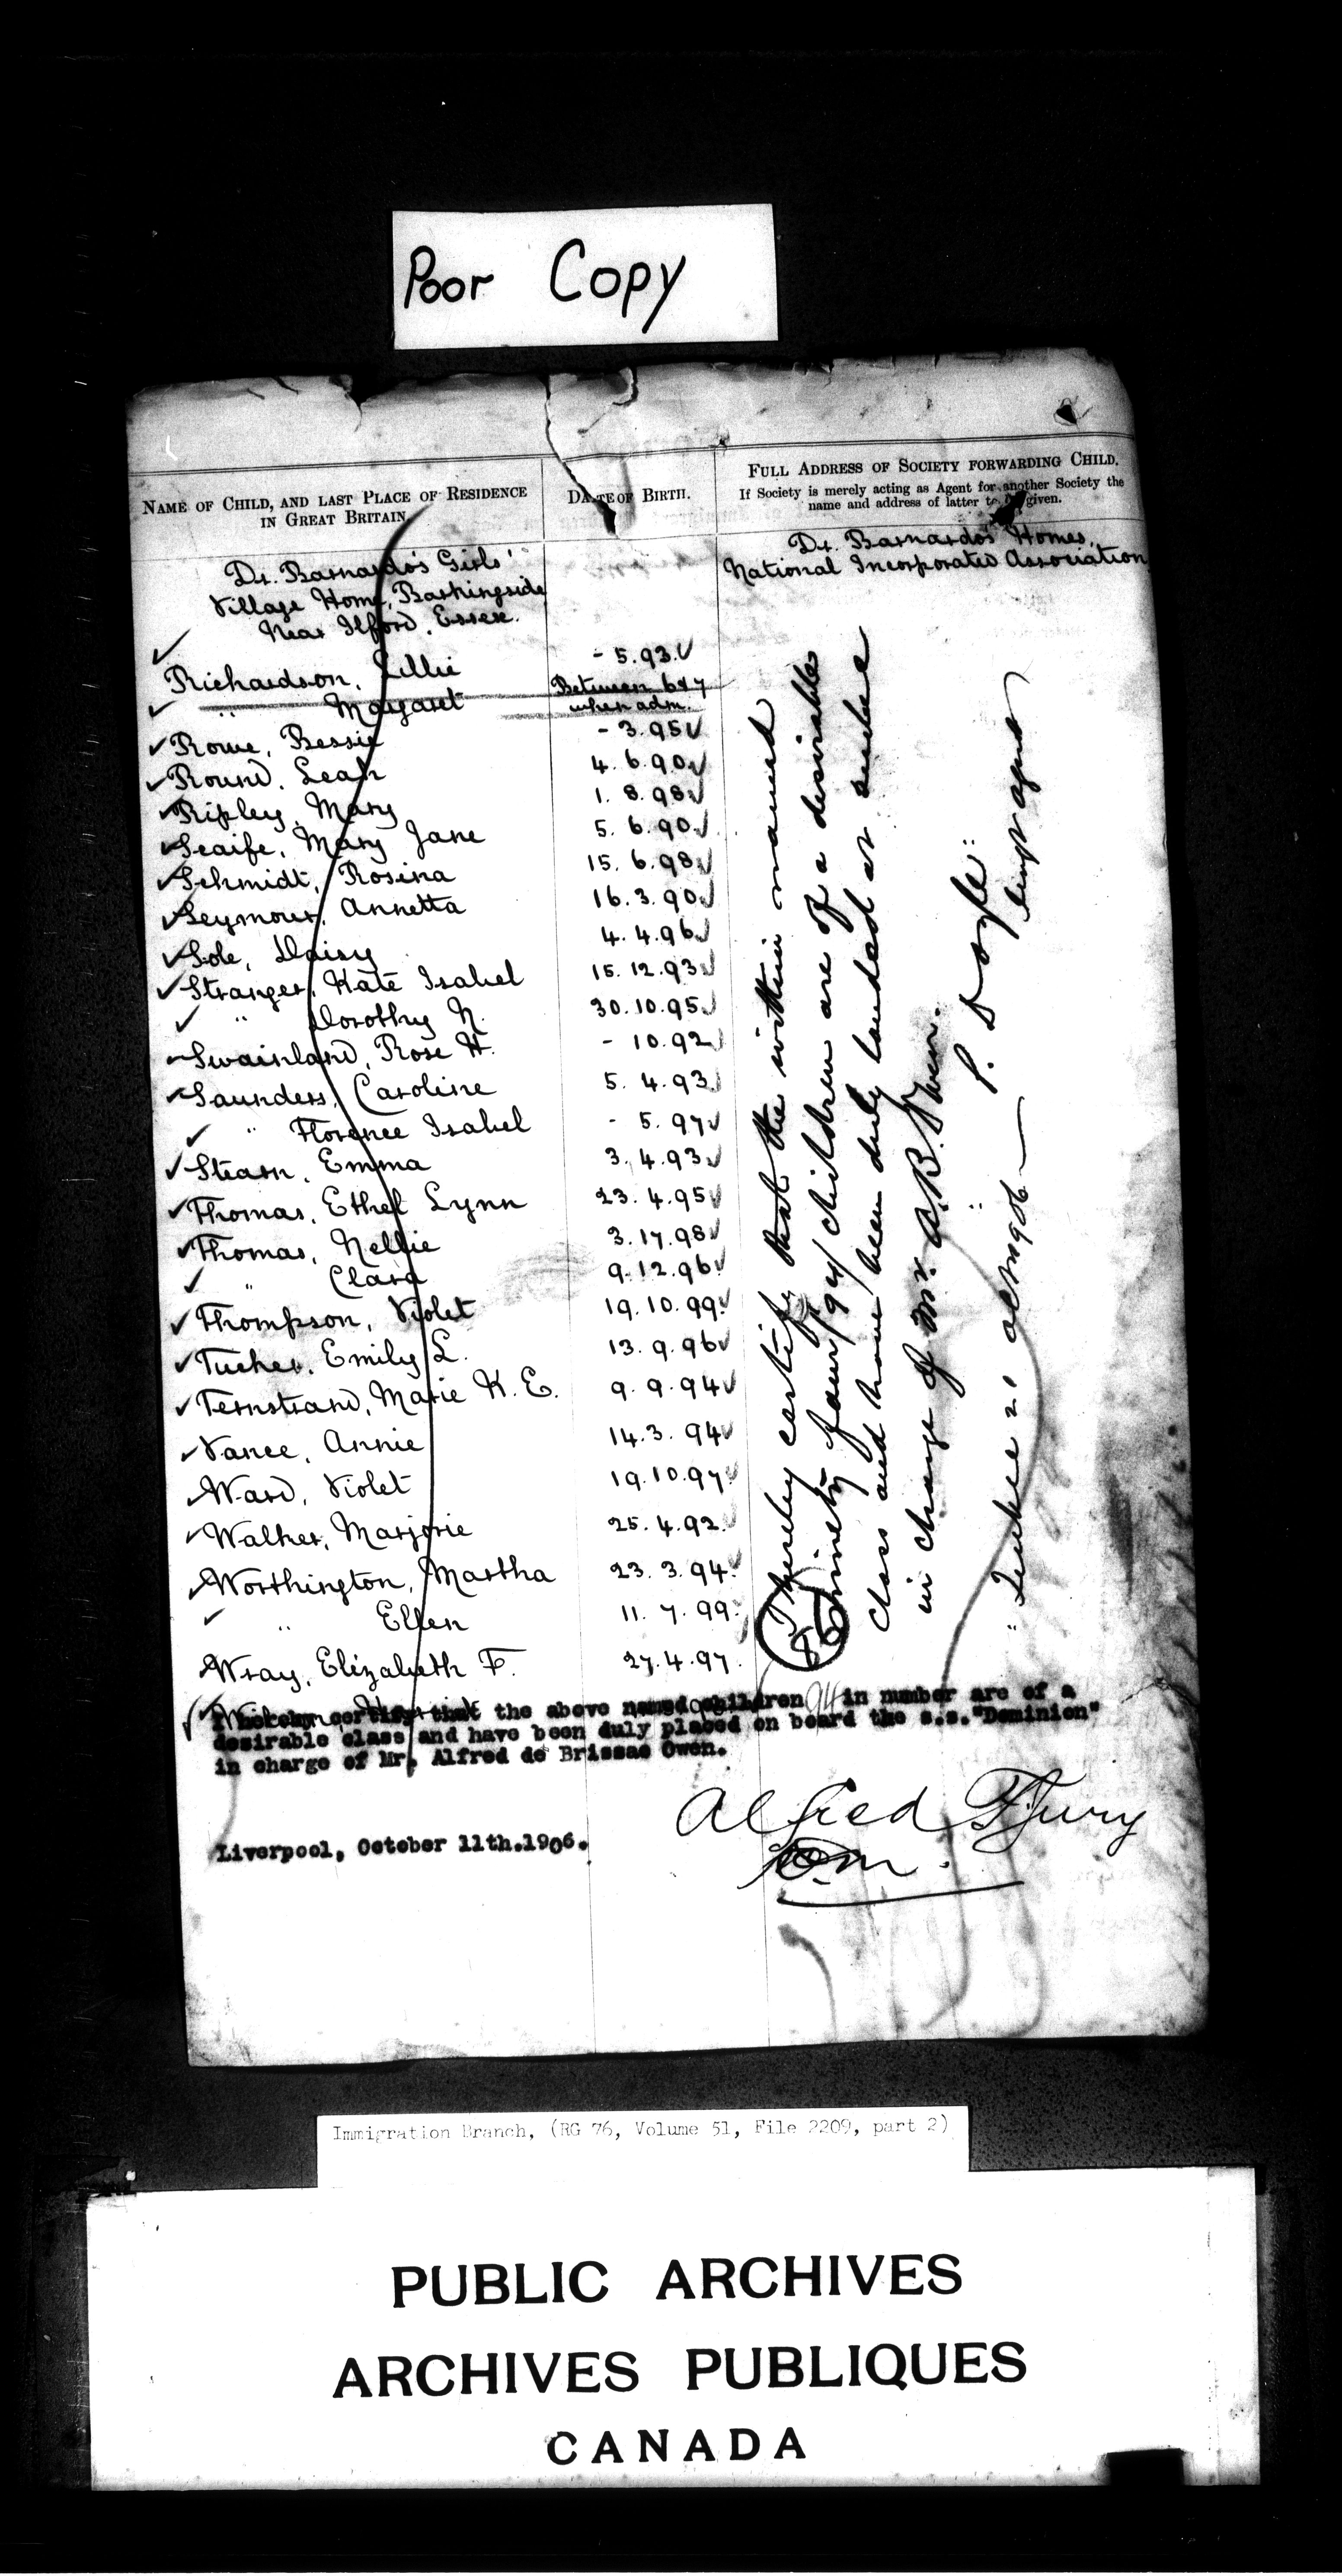 Poor Copy
NAME OF CHILD, AND LAST PLACE OF RESIDENCE
IN GREAT BRITAIN.
DATE OF BIRTH.
FULL ADDRESS OF SOCIETY FORWARDING CHILD.
If Society is merely acting as Agent for another Society the
name and address of latter to be given.
Dr. Barnardo's Girls'
Village Home, Barkingside
Near Ilford. Essex.
Dr. Barnardo's Homes,
National Incorporated Association
Richardson, Lillie - 5.93.
" Margaret Between 6 & 7
when adm.
Rowe, Bessie - 3.95
Round, Leah 4.6.90
Ripley, Mary 1.8.98
Scaife, Mary Jane 5.6.90
Schmidt, Rosina 15.6.98
Seymour, Annetta 16.3.90
Sole, Daisy 4.4.96
Stranger, Kate Isabel 15.12.93
" Dorothy N. 30.10.95
Swainland, Rose H. - 10.92
Saunders, Caroline 5.4.93
" Florence Isabel - 5.97
Stearn, Emma 3.4.93
Thomas, Ethel Lynn 23.4.95
Thomas, Nellie 3.17.98
" Clara 9.12.96
Thompson, Violet 19.10.99
Tucker, Emily L. 13.9.96
Ternstrand, Marie K. E. 9.9.94
Vance, Annie 14.3.94
Ward, Violet 19.10.97
Walker, Marjorie 25.4.92
Worthington, Martha 23.3.94
" Ellen 11.7.99
Wray, Elizabeth F. 27.4.97.
I hereby certify that the above named children 94 in number are of a
desirable class and have been duly placed on board the s.s. "Dominion"
in charge of Mr. Alfred de Brissac Owen.
Liverpool, October 11th. 1906.
Alfred F Jury
I hereby certify that the within named
ninety four/94/children are of a desirable
class and have been duly landed at Quebec
in charge of Mr. A. B. Owen.
P. Doyle
Quebec 21
Immigration Branch, (RG 76, Volume 51, File 2209, part 2)
PUBLIC ARCHIVES
ARCHIVES PUBLIQUES
CANADA